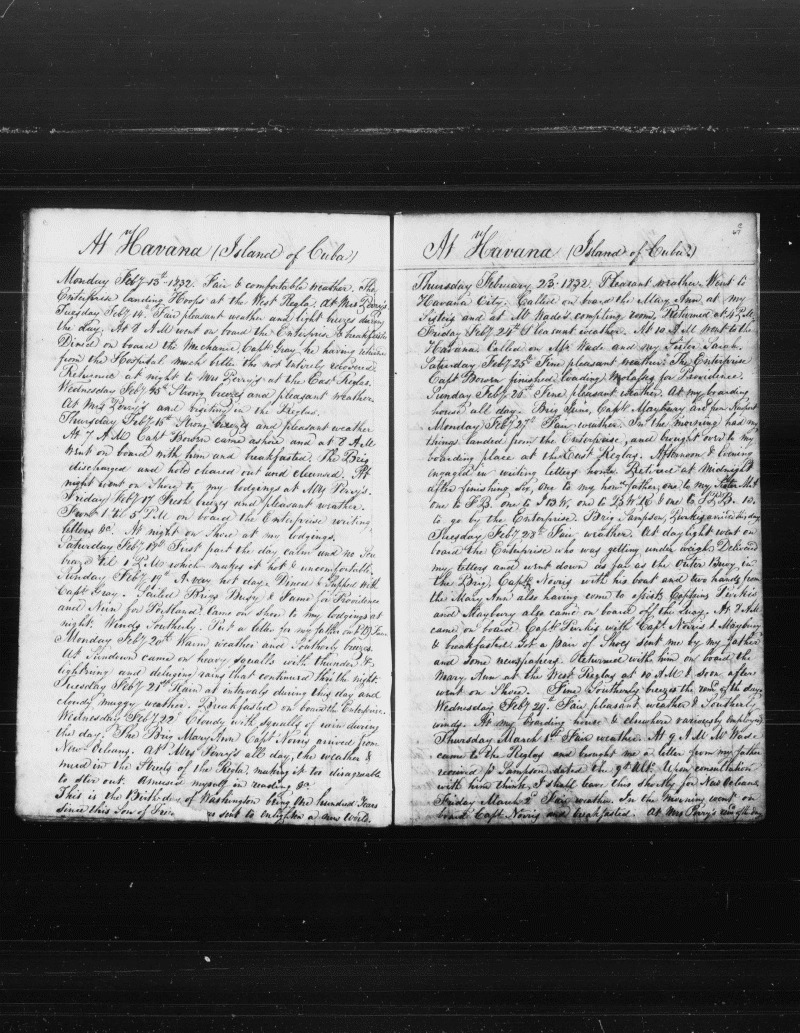 At Havana (Island of Cuba)
Monday Feby 13th 1832. Fair & comfortable weather. The
Enterprise landing Hoops at the West Regla. At Mrs Perry's
Tuesday Feby 14. Fair pleasant weather and light breezes during
the day. At 8 A.M went on board the Enterprise & breakfasted
Dined on board the Mechanic, Capt Gray, he having returned
from the Hospital much better tho not entirely recovered.
Returned at night to Mrs Perry's at the East Reglas.
Wednesday Feby 15th Strong breezes and pleasant weather.
At Mrs Perry's and visiting in the Reglas.
Thursday Feby 16th Strong breezes and pleasant weather
At 7 A.M Capt Bowen came ashore and at 8 A.M
went on board with him and breakfasted. The Brig
discharged and hold cleared out and cleansed. At
night went on Shore to my lodgings at Mrs Perry's.
Friday Feby 17 Fresh breezes and pleasant weather.
From 1 til 5 P.M. on board the Enterprise writing
letters &c. At night on Shore at my lodgings.
Saturday Feby 18th First part the day calm and no Sea
breeze til 1 P.M which makes it hot & uncomfortable.
Sunday Feby 19th A very hot day. Dined & Supped with
Capt Gray. Sailed Brigs Busy & Fame for Providence
and Nun for Portland. Came on shore to my lodgings at
night. Winds Southerly. Put a letter for my father on
Monday Feby 20th Warm weather and Southerly breezes.
At Sundown came on heavy squalls with thunder &
lightning and deluging rains that continued thro the night.
Tuesday Feby 21st Rain at intervals during this day and
cloudy muggy weather. Breakfasted on board the Enterprise.
Wednesday Feby 22 Cloudy with squalls of rain during
the day. The Brig Mary Ann Capt Norris arrived from
New Orleans. At Mrs Perry's all day, the weather &
mud in the Streets of the Regla making it too disagreeable
to stir out. Amused myself in reading &c
This is the Birthday of Washington being One hundred Years
since this Son of sent to enlighten a new World.
At Havana (Island of Cuba)
67
Thursday February 23. 1832. Pleasant weather. Went to
Havana City. Called on board the Mary Ann, at my
Sisters and at Mr Wade's compting room. Returned at 4 P.M.
Friday Feby 24th Pleasant weather. At 10 A.M went to the
Havana. Called on Mr Wade and my Sister Sarah.
Saturday Feby 25th Fine pleasant weather. The Enterprise
Capt Bowen finished loading Molasses for Providence.
Sunday Feby 26th Fine pleasant weather. At my boarding
house all day. Brig June, Capt Maybury arr from Newport.
Monday Feby 27th Fair weather. In the morning had my
things landed from the Enterprise, and brought over to my
boarding place at the East Reglas. Afternoon & Evening
engaged in writing letters home. Retired at Midnight
after finishing Six, one to my hond father, one to my Sister
one to F.B. one to J.B.W, one to B.W. & one to
to go by the Enterprise. Brig Sampson, Perkins arrived this day.
Tuesday Feby 28th Fair weather. At daylight went on
board the Enterprise who was getting under weigh. Delivered
my letters and went down as far as the Outer Buoy, in
the Brig. Capt Norris with his boat and two hands from
the Mary Ann also having come to assist. Captains Perkins
and Maybury also came on board off the Quay. At 8 A.M
came on board Capt Perkins with Capt Norris & Maybury
& breakfasted. Got a pair of Shoes sent me by my father
and some newspapers. Returned with him on board the
Mary Ann at the West Reglas at 10 A.M & soon after
went on Shore. Fine Southerly breezes the remr of the day.
Wednesday Feby 29. Fair pleasant weather & Southerly
winds. At my boarding house & elsewhere variously employed
Thursday March 1st Fair weather. At 9 A.M Mr Wade
came to the Reglas and brought me a letter from my father
received pr Sampson dated the 9th Ult. Upon consultation
with him think I shall leave this shortly for New Orleans.
Friday March 2d Fair weather. In the morning went on
board Capt Norris and breakfasted. At Mrs Perry's remr of the day